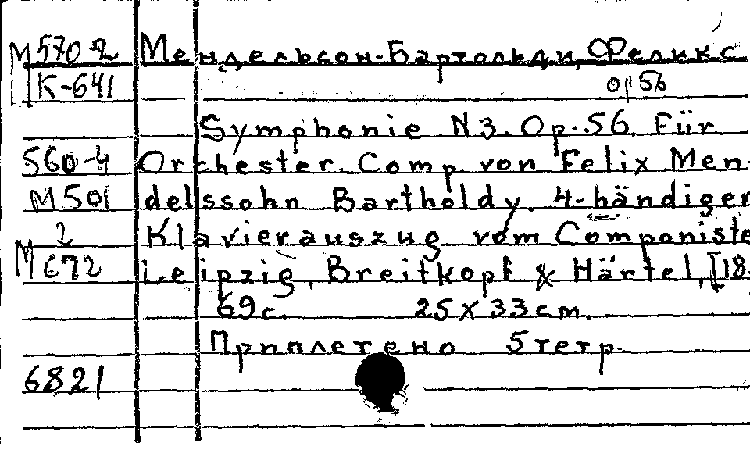 М 570-2 Мендельсон-Бартольди, Феликс
К-641 op 56
Symphonie N3. Op. 56. Für
560-4 Orchester. Comp. von Felix Men-
М 501 delssohn Bartholdy. 4-händiger
2 Klavierauszug vom Componiste
М 672 Leipzig, Breitkopf & Härtel, [18
69 с. 25 X 33 cm.
Приплетено 5 тетр.
6821